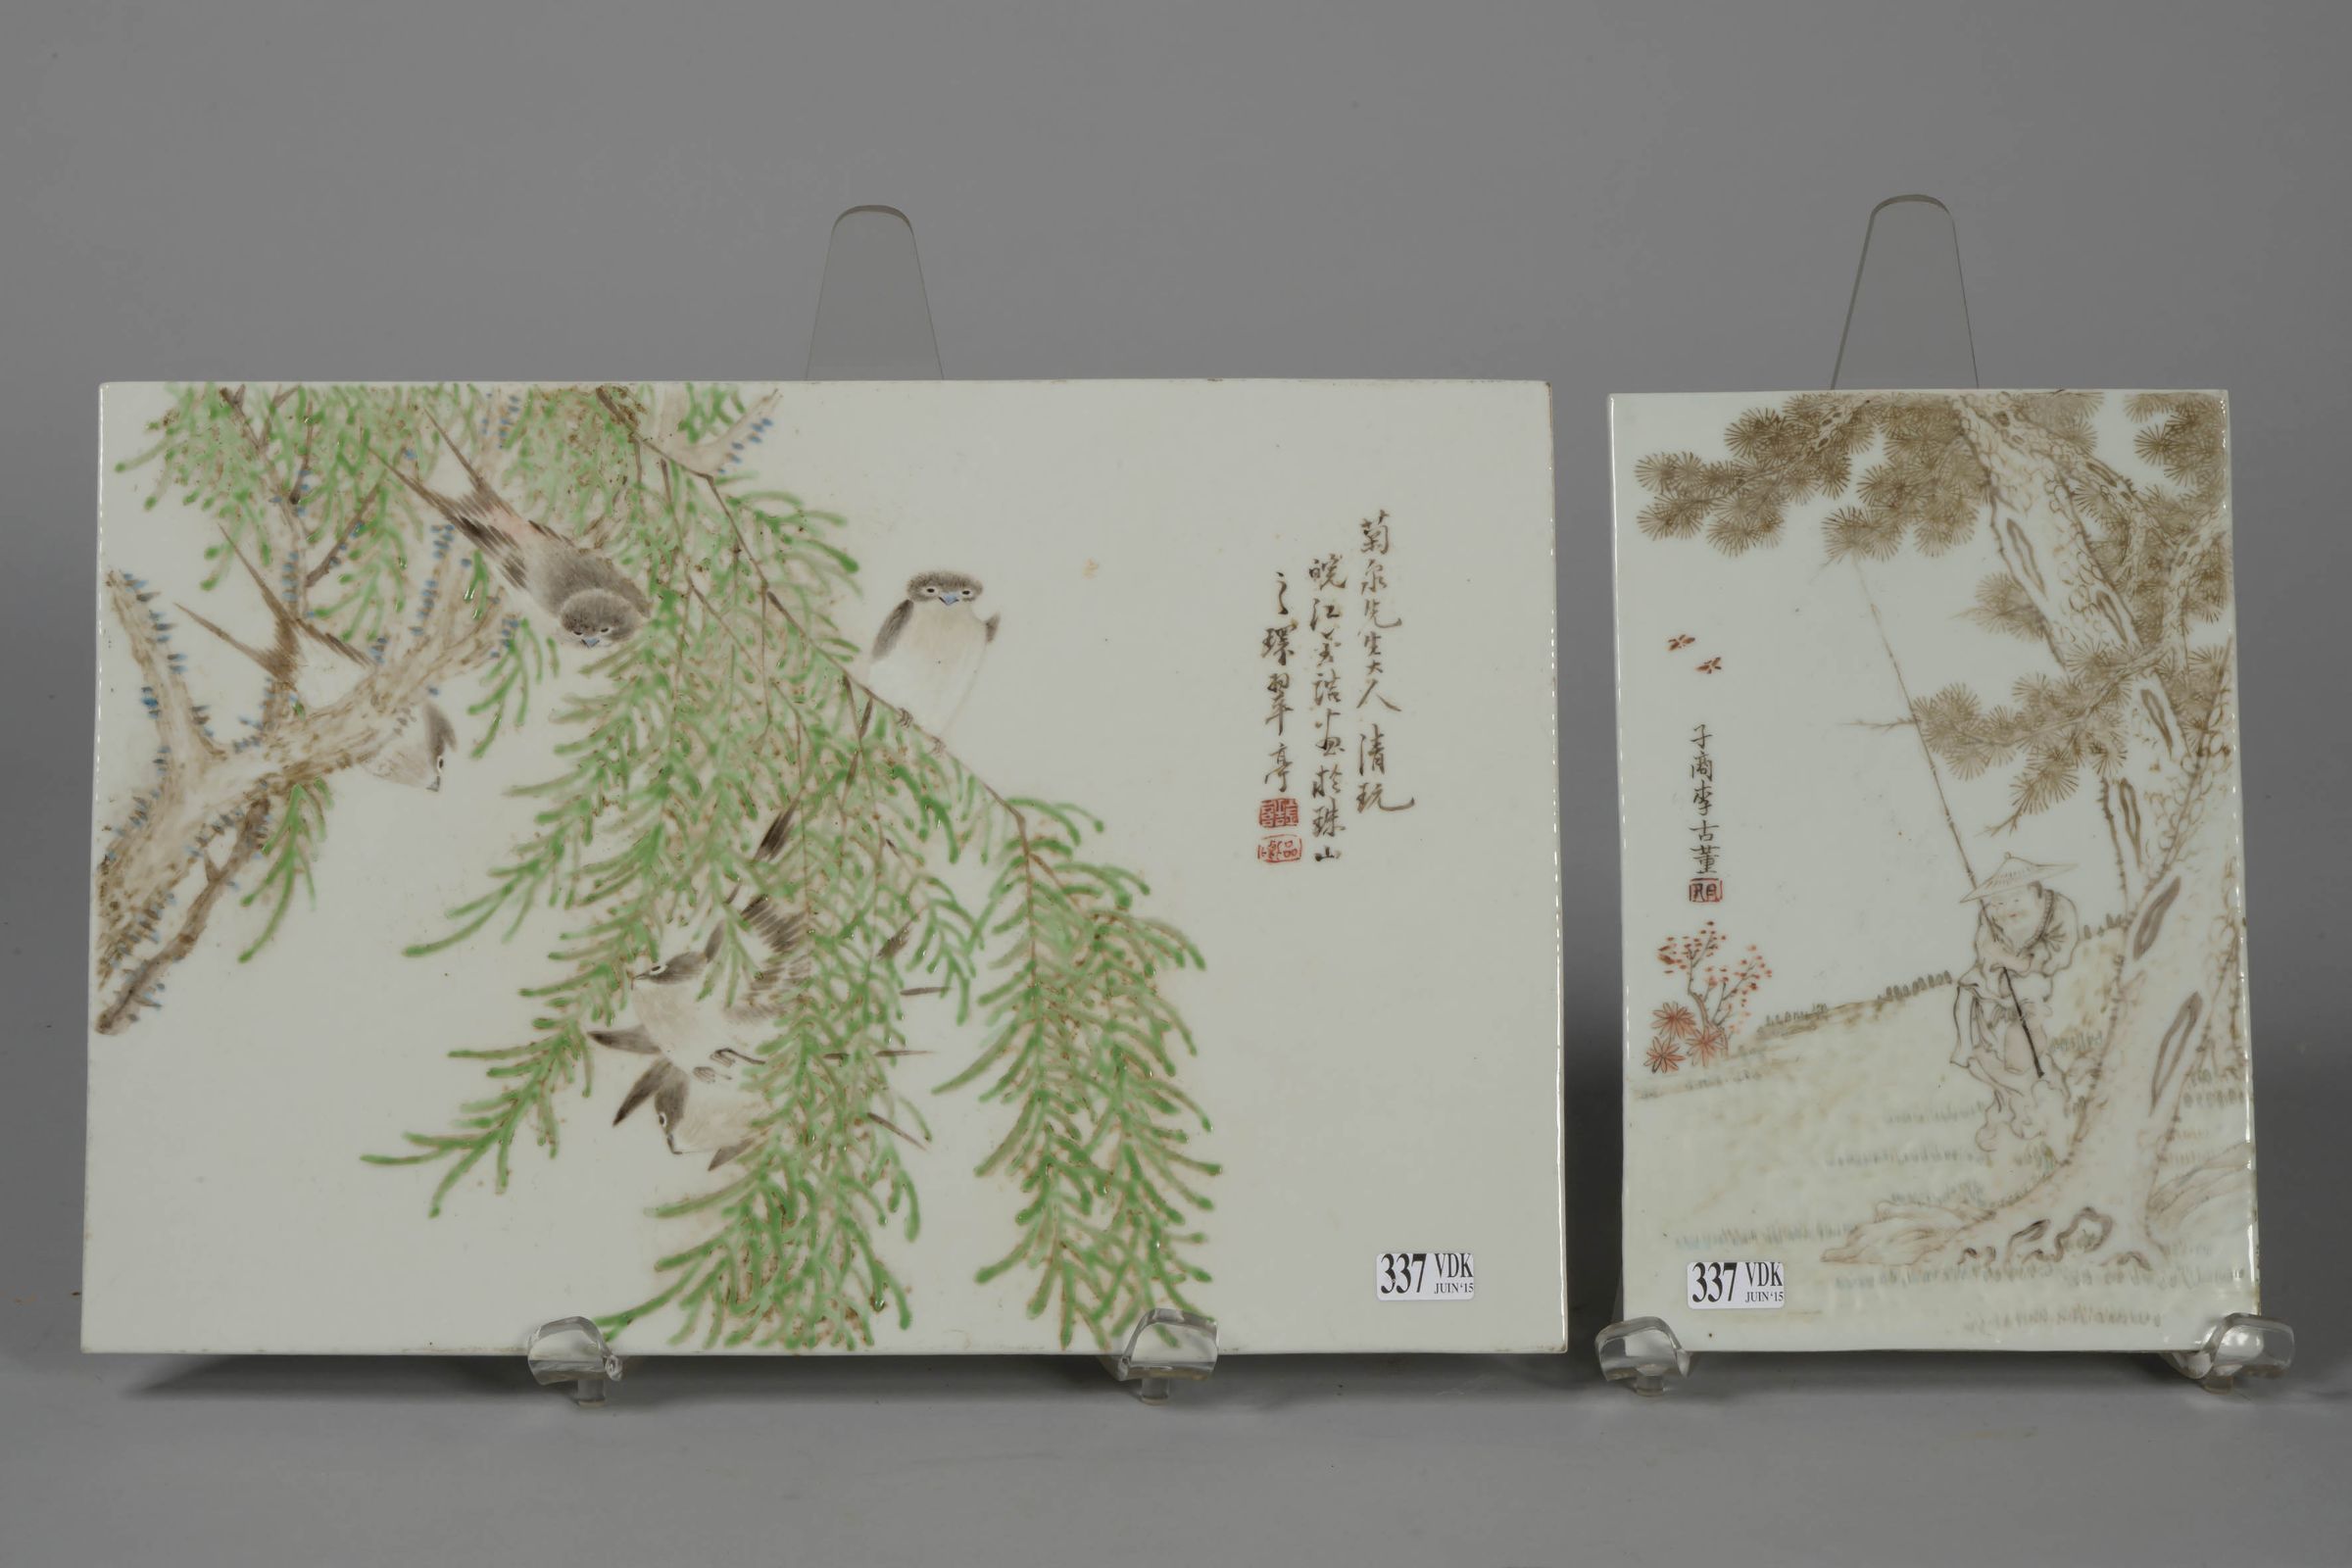 菊泉先生大人清玩
皖江芳誥畫於珠山
之環翠亭
337 VDK
JUIN'15
子商李古董
337 VDK
JUIN'15